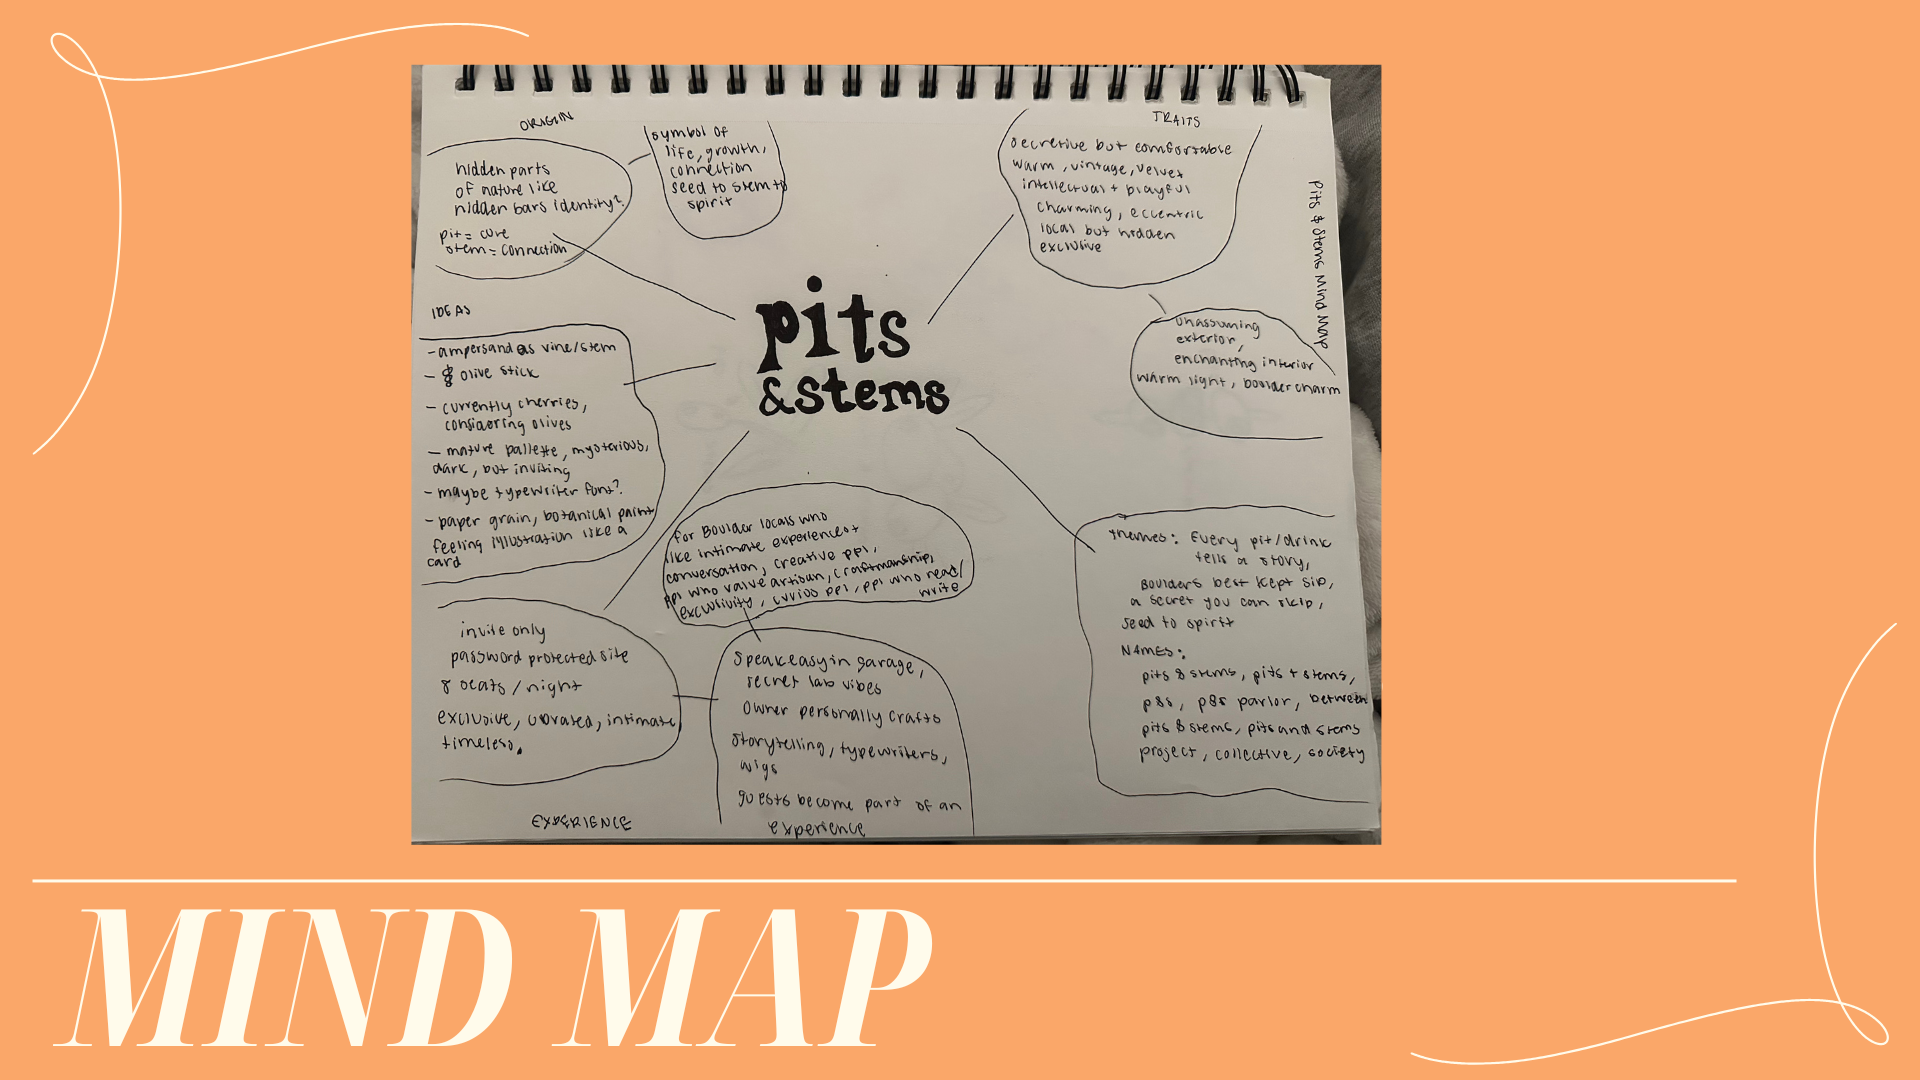 ORIGIN
hidden parts
of nature like
hidden bars identity?
pit = core
stem = connection
symbol of
life, growth,
connection
seed to stem to
spirit
TRAITS
secretive but comfortable
warm, vintage, velvet
intellectual + playful
charming, eccentric
local but hidden
exclusive
Pits & Stems Mind Map
unassuming
exterior,
enchanting interior
warm light, boulder charm
IDEAS
- ampersand as vine/stem
- & olive stick
- currently cherries,
considering olives
- mature pallette, mysterious,
dark, but inviting
- maybe typewriter font?
- paper grain, botanical paint
feeling illustration like a
card
pits
&stems
for Boulder locals who
like intimate experiences +
conversation, creative ppl,
ppl who value artisan, craftmanship,
exclusivity, curios ppl, ppl who read/
write
invite only
password protected site
8 seats/night
exclusive, curated, intimate
timeless.
EXPERIENCE
Speakeasy in garage,
secret lab vibes
Owner personally crafts
storytelling, typewriters,
wigs
guests become part of an
experience
themes: Every pit/drink
tells a story,
Boulders best kept sip,
a secret you can skip,
seed to spirit
NAMES:
pits & stems, pits + stems,
p&s, p&s parlor, between
pits & stems, pits and stems
project, collective, society
MIND MAP